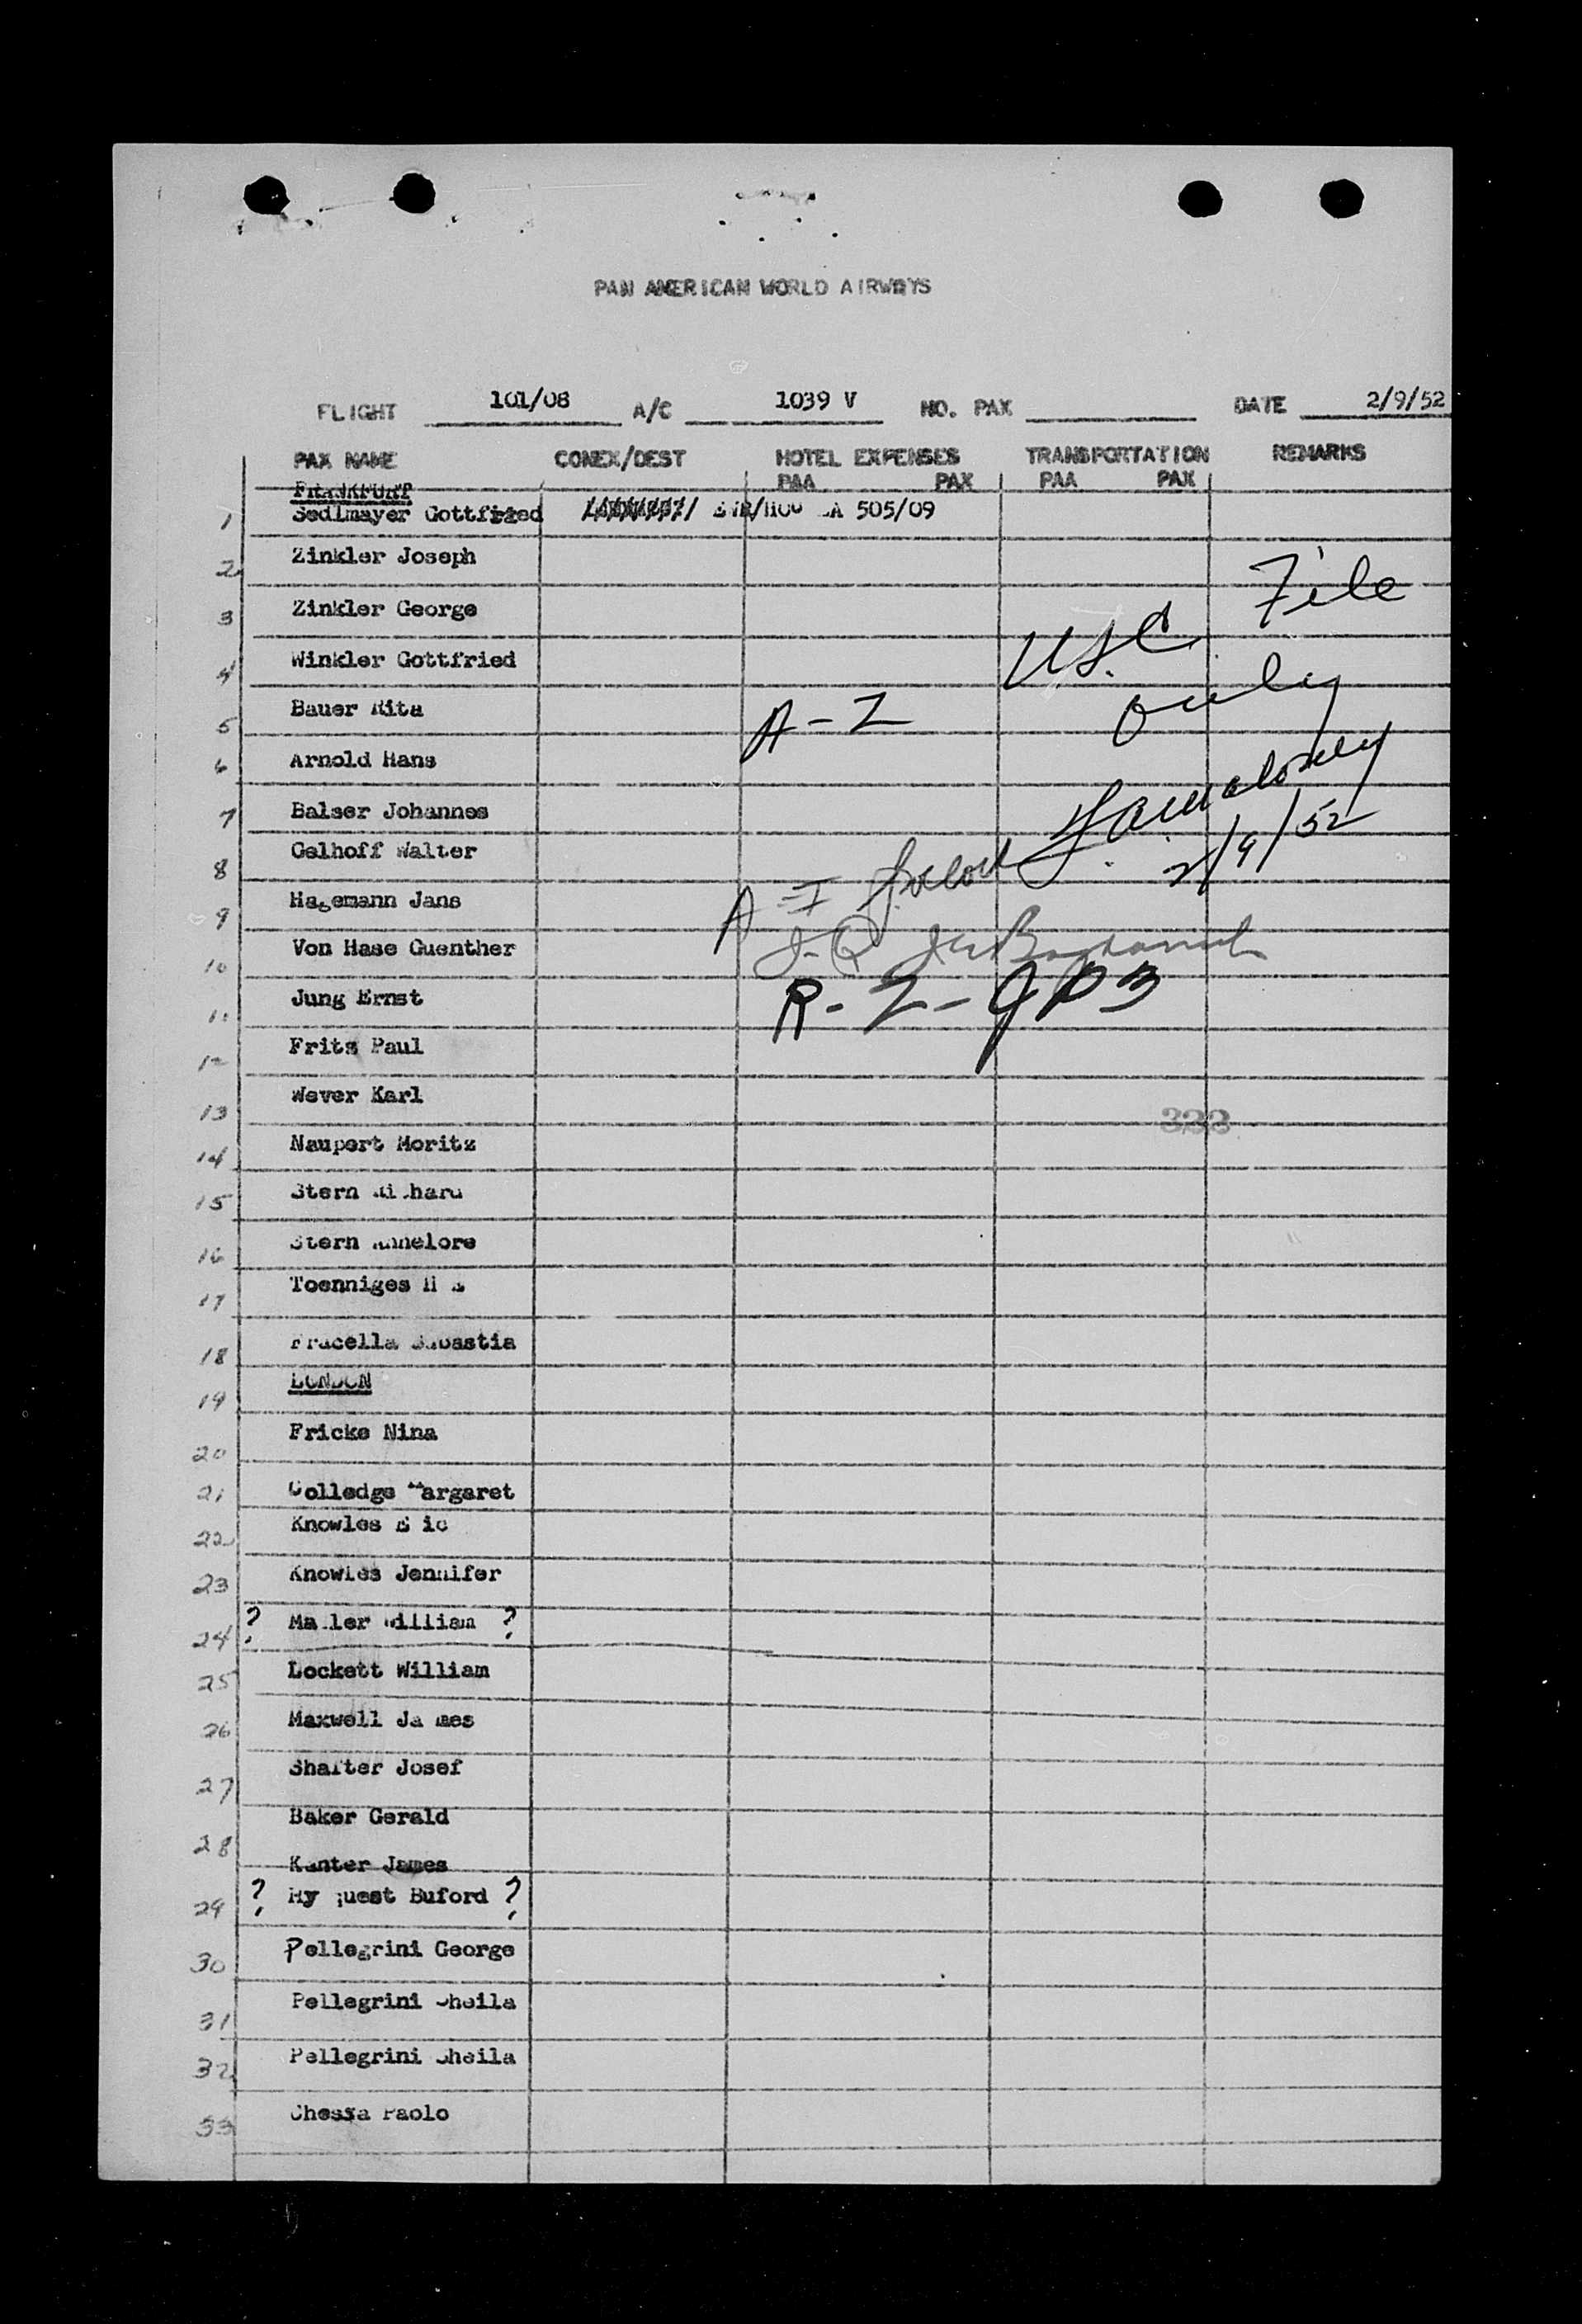 PAN AMERICAN WORLD AIRWAYS
FLIGHT 101/08 A/C 1039 V NO. PAX DATE 2/9/52
PAX NAME CONEX/DEST HOTEL EXPENSES TRANSPORTATION REMARKS
PAA PAX PAA PAX
FRANKFURT
1 Sedlmayer Gottfried 505/09
2 Zinkler Joseph
File
3 Zinkler George
U.S.C.
4 Winkler Gottfried
only
5 Bauer Rita
A-Z
6 Arnold Hans
7 Balser Johannes
2/9/52
8 Gelhoff Walter
9 Hagemann Jans
A-I
10 Von Hase Guenther
J-Q
11 Jung Ernst
R-Z-
12 Fritz Paul
13 Wever Karl
333
14 Naupert Moritz
15 Stern
16 Stern Annelore
17 Toenniges
18
19 LONDON
20 Fricke Nina
21 Colledge Margaret
22 Knowles
23 Knowles Jennifer
24 ? William ?
25 Lockett William
26 Maxwell Ja mes
27 Josef
28 Baker Gerald
Kanter James
29 ? Buford ?
30 Pellegrini George
31 Pellegrini Sheila
32 Pellegrini Sheila
33 Paolo